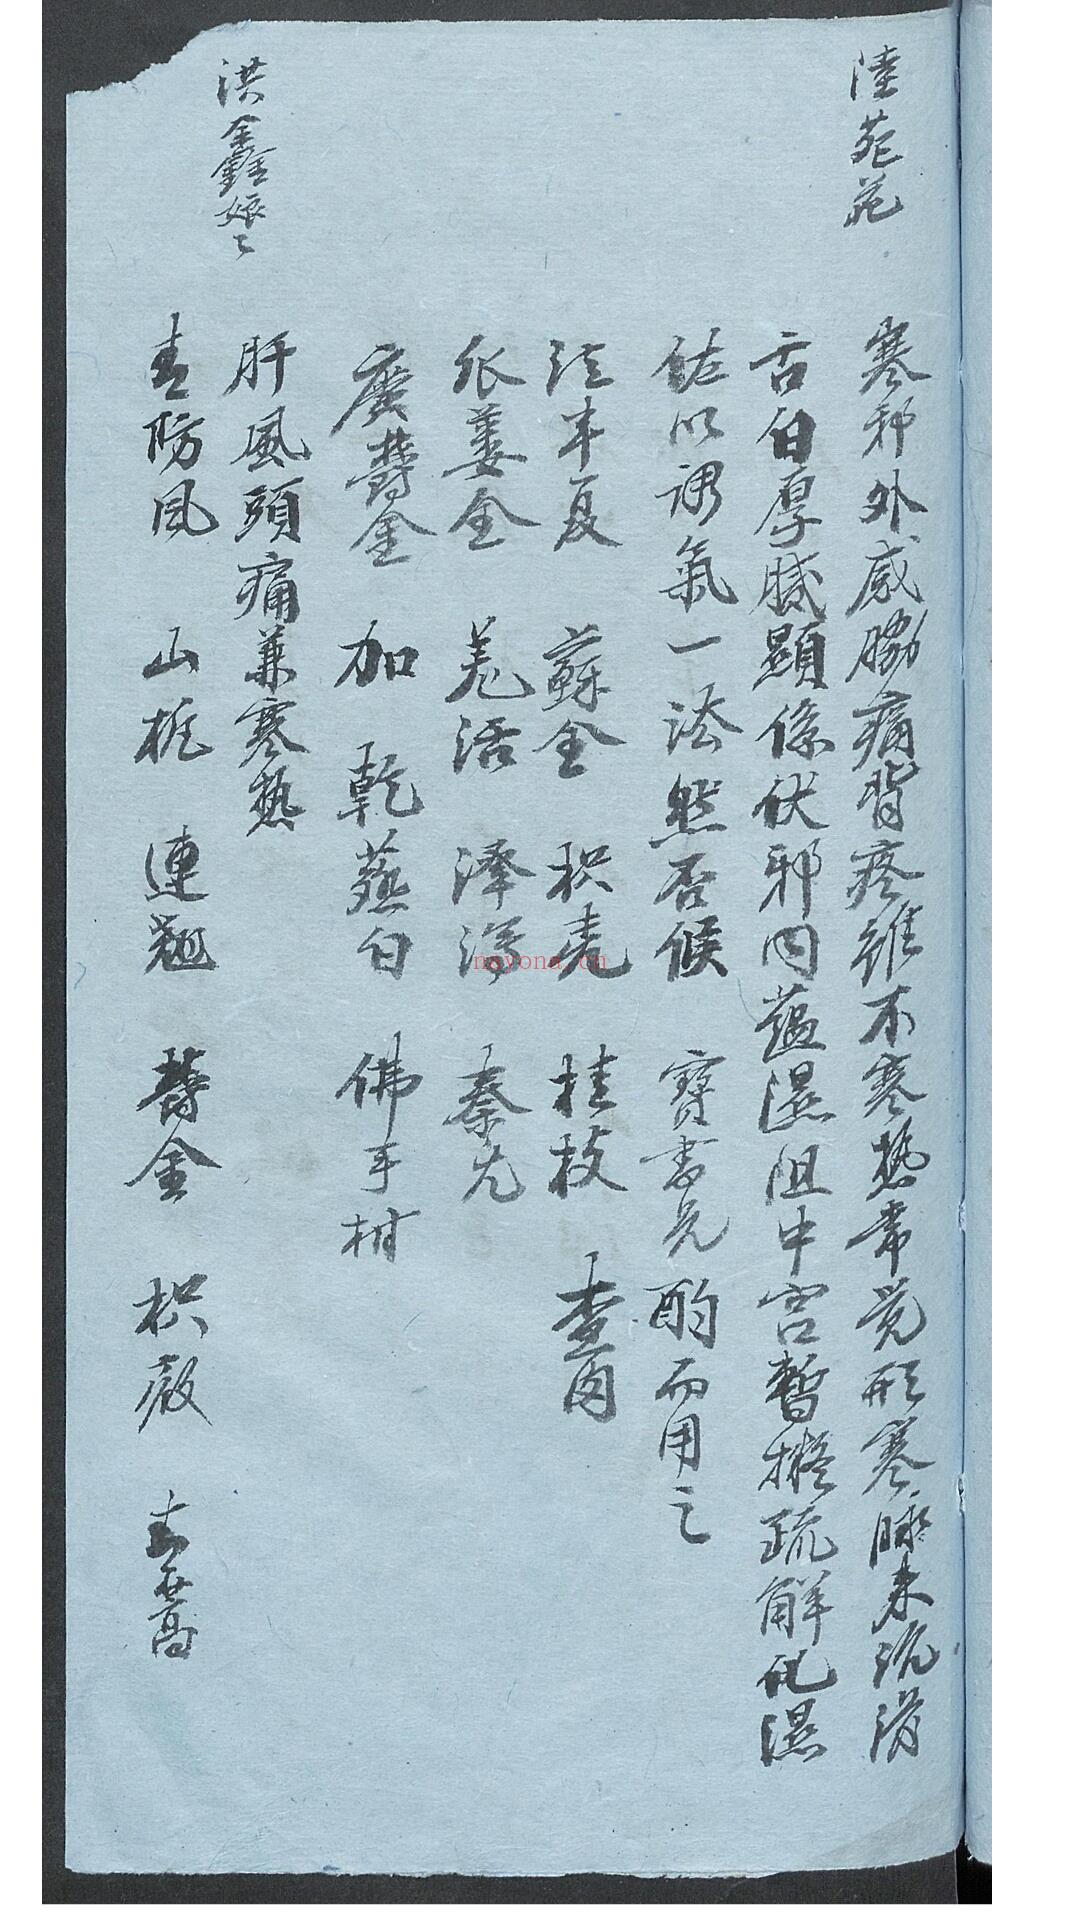 陸苑苑
寒邪外感脇痛背疼雖不寒熱常覺形寒脉来沉滑
舌白厚膩顯係伏邪内蘊濕阻中宫暫擬疏解化濕
佐以调氣一法然否候 寶書兄酌而用之
法半夏 蘇全 枳壳 桂枝 查肉
瓜蔞全 羌活 澤瀉 秦艽
廣鬱金 加 乾薤白 佛手柑
洪鑫娘娘
肝風頭痛兼寒热
青防风 山梔 連翹 鬱金 枳殼 青蒿
nayona.cn